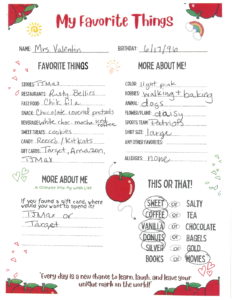 My Favorite Things
NAME: Mrs. Valentin BIRTHDAY 6/17/96
FAVORITE THINGS
STORES: TJ Max
RESTAURANTS: Rusty Bellies
FAST FOOD: Chik fil a
SNACK: Chocolate covered pretzels
BEVERAGE: white choc. mocha iced
SWEET TREATS: cookies
CANDY: Reece's / Kitkats
GIFT CARDS: Target, Amazon,
TJ Max
MORE ABOUT ME!
COLOR: light pink
HOBBIES: walking + baking
ANIMAL: dogs
FLOWER/PLANT: daisy
SPORTS TEAM: Patriots
SHIRT SIZE: large
ANY OTHER FAVORITES?
ALLERGIES: none
MORE ABOUT ME
If you found a gift card, where
would you want to spend it?
TJ Max or
Target
THIS OR THAT!
SWEET or SALTY
COFFEE or TEA
VANILLA or CHOCOLATE
DONUTS or BAGELS
SILVER or GOLD
BOOKS or MOVIES
"Every day is a new chance to learn, laugh, and leave your
unique mark on the world!"